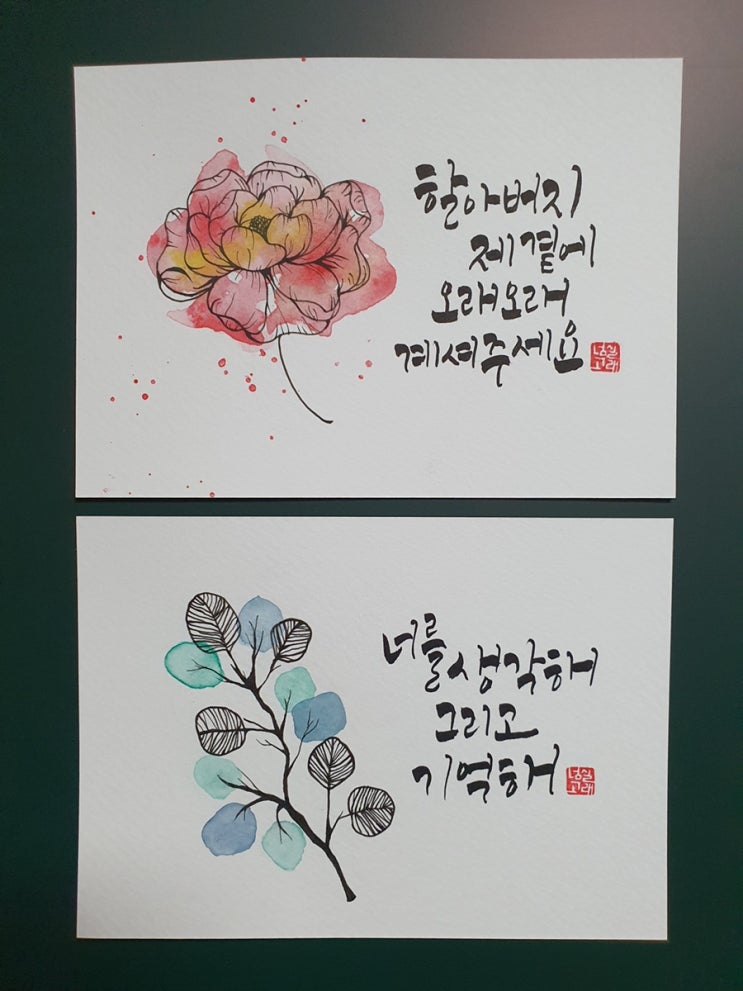 할아버지
제 곁에
오래오래
계셔주세요
넘실
고래
너를 생각해
그리고
기억해
넘실
고래